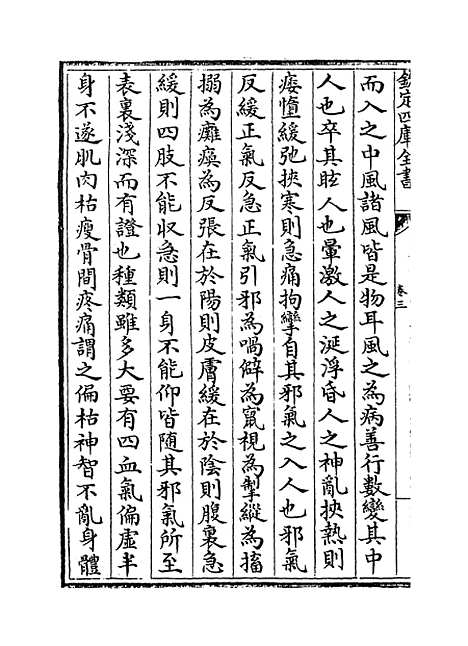 欽定四庫全書
卷三
而入之中風諸風皆是物耳風之為病善行數變其中
人也卒其眩人也暈激人之涎浮昏人之神亂挾熱則
痿惰緩弛挾寒則急痛拘攣自其邪氣之入人也邪氣
反緩正氣反急正氣引邪為喎僻為竄視為掣縱為搐
搦為癱瘓為反張在於陽則皮膚緩在於陰則腹裏急
緩則四肢不能収急則一身不能仰皆隨其邪氣所至
表裏淺深而有證也種類雖多大要有四血氣偏虛半
身不遂肌肉枯瘦骨間疼痛謂之偏枯神智不亂身體